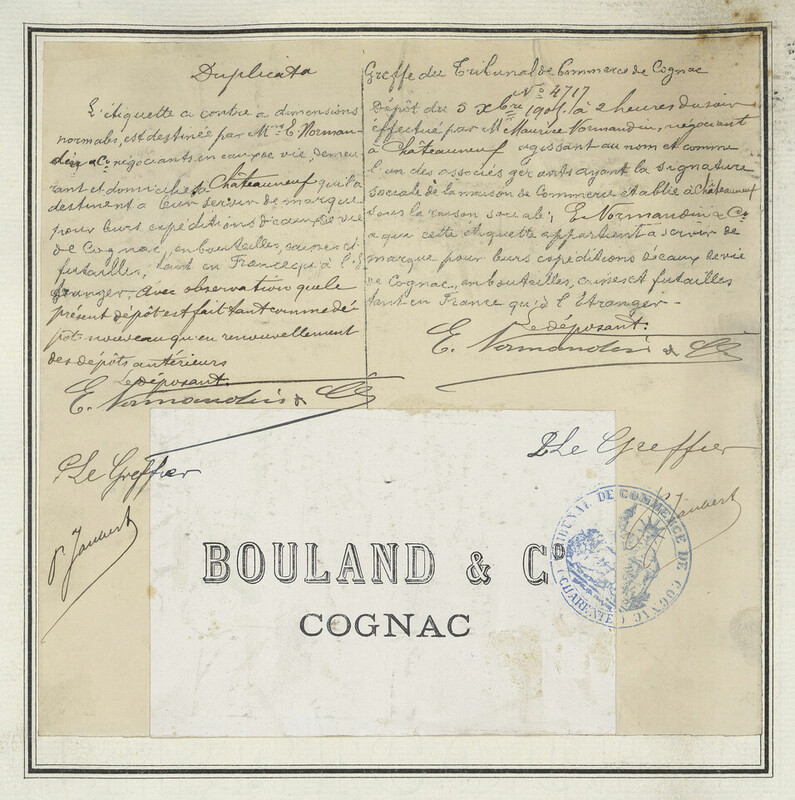 Duplicata
L'étiquette ci contre à dimensions
normales, est destinée par Mrs E. Norman-
din & Co négociants en eaux de vie, demeu
rant et domiciliés à Châteauneuf qui la
destinent à leur servir de marque
pour leurs expéditions d'eaux de vie
de Cognac, en bouteilles, caisses et
futailles, tant en France qu'à l'É
tranger, avec observation que le
présent dépôt est fait tant comme dé
pôt nouveau qu'en renouvellement
des dépôts antérieurs
Le déposant.
E. Normandin & Cie
P. Le Greffier
P. Jaubert
Greffe du Tribunal de Commerce de Cognac
No 4717
Dépôt du 5 Xbre 1904 à 2 heures du soir
effectué par M. Maurice Normandin, négociant
à Châteauneuf agissant au nom et comme
l'un des associés gérants ayant la signature
sociale de la maison de Commerce établie à Châteauneuf
sous la raison sociale; E. Normandin & Co
à que cette étiquette appartient à servir de
marque pour leurs expéditions d'eaux de vie
de Cognac, en bouteilles, caisses et futailles
tant en France qu'à l'Étranger
Le déposant.
E. Normandin & Cie
P. Le Greffier
P. Jaubert
TRIBUNAL DE COMMERCE DE COGNAC
(CHARENTE)
BOULAND & Co
COGNAC